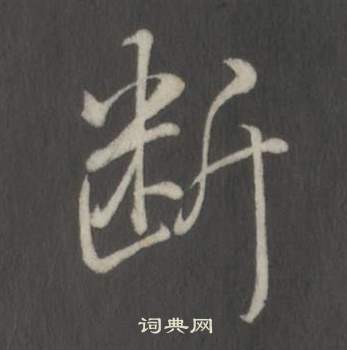 断
词典网